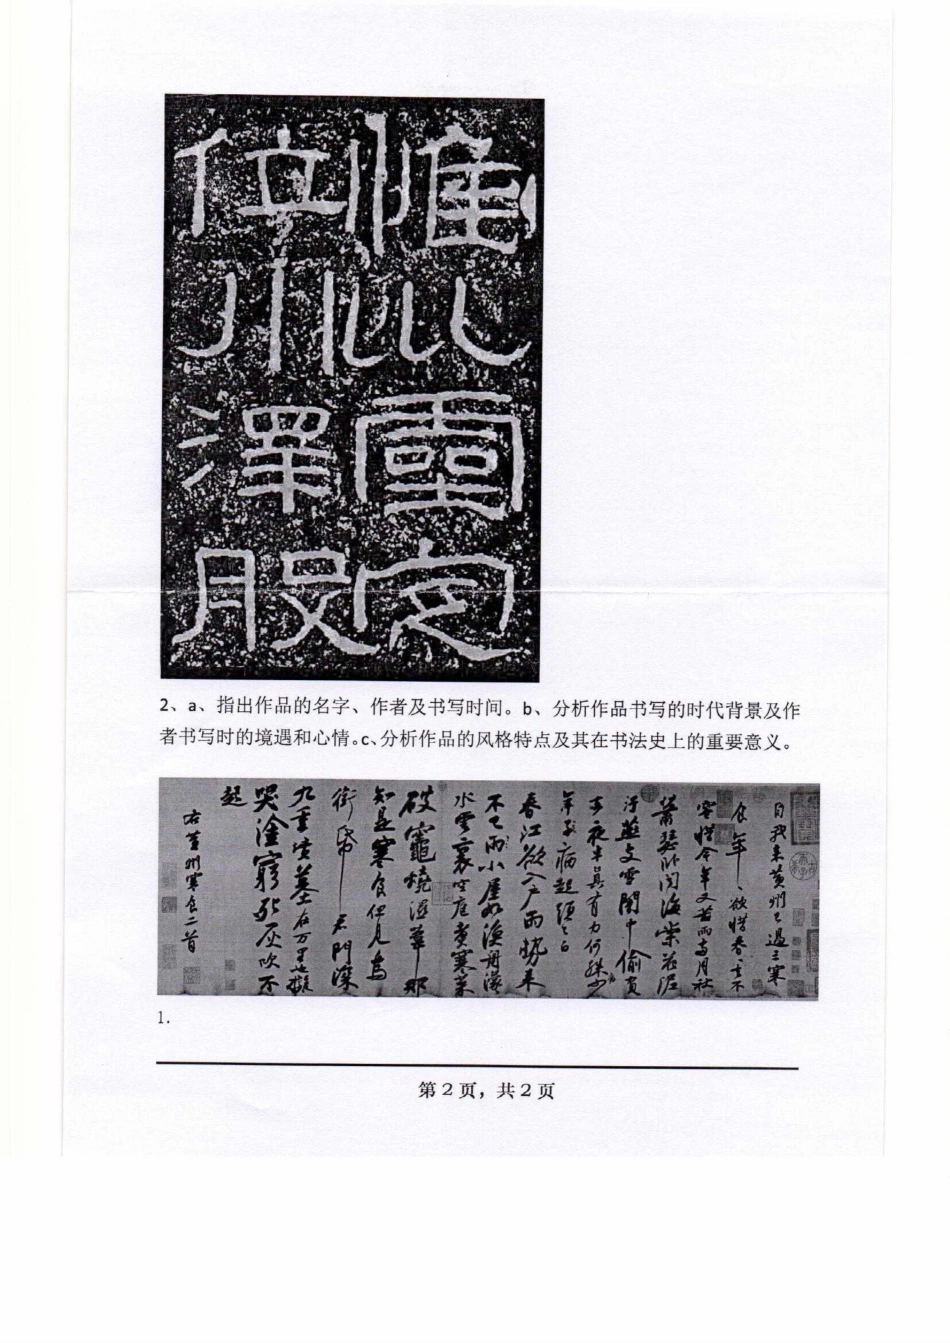 惟巛靈定
位川澤股
2、a、指出作品的名字、作者及书写时间。b、分析作品书写的时代背景及作
者书写时的境遇和心情。c、分析作品的风格特点及其在书法史上的重要意义。
自我来黄州已過三寒
食年〻欲惜春〻去不
容惜今年又苦雨两月秋
蕭瑟卧闻海棠花泥
汙燕支雪闇中偷負
去夜半真有力何殊少
年子病起頭已白
春江欲入户雨勢来
不已雨小屋如漁舟濛〻
水雲裏空庖煮寒菜
破竈燒濕葦那
知是寒食但見烏
銜帋君門深
九重墳墓在万里也擬
哭塗窮死灰吹不
起
右黄州寒食二首
1.
第2页，共2页